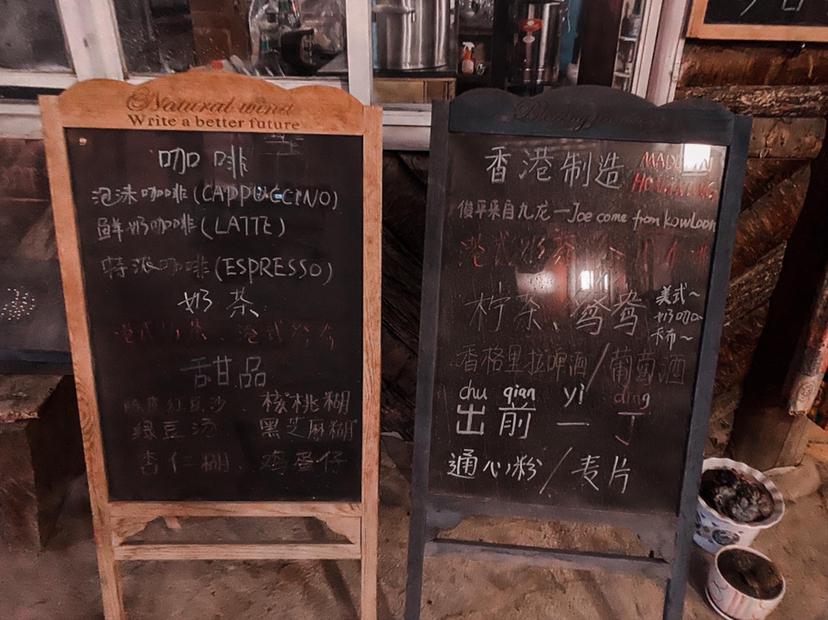 Natural wind
Write a better future
咖啡
泡沫咖啡(CAPPUCCINO)
鲜奶咖啡(LATTE)
特浓咖啡(ESPRESSO)
奶茶
港式奶茶、港式
甜品
陈皮红豆沙 核桃糊
绿豆汤 黑芝麻糊
杏仁糊、鸡蛋仔
香港制造 MADE IN
HONGKONG
俊平来自九龙—Joe come from Kowloon
港式奶茶
柠茶、鸳鸯 美式~
奶咖~
香格里拉啤酒/葡萄酒
chu qian yi ding
出前一丁
通心粉/麦片